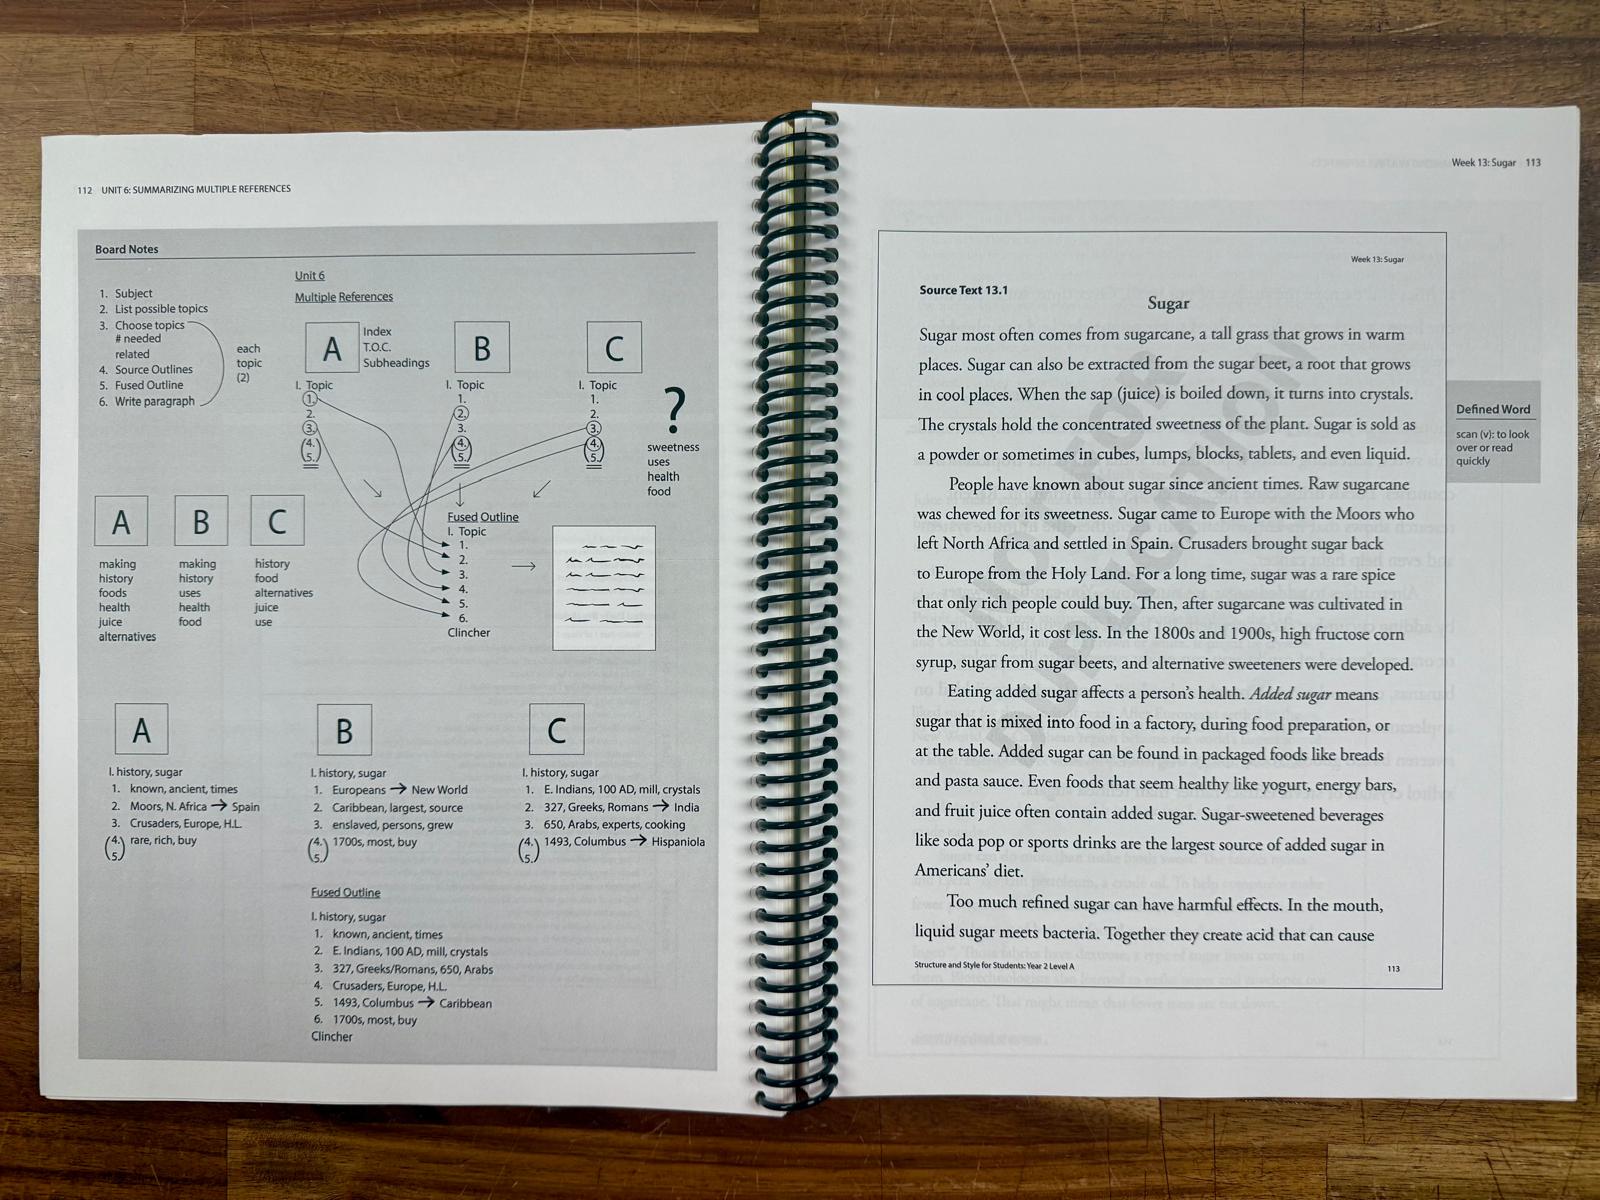 112 UNIT 6: SUMMARIZING MULTIPLE REFERENCES
Board Notes
Unit 6
Multiple References
1. Subject
2. List possible topics
3. Choose topics
# needed
related
4. Source Outlines
5. Fused Outline
6. Write paragraph
each
topic
(2)
A
Index
T.O.C.
Subheadings
B
C
I. Topic
1.
2.
3.
(4.
5.)
I. Topic
1.
2.
3.
(4.
5.)
I. Topic
1.
2.
3.
(4.
5.)
?
sweetness
uses
health
food
A
making
history
foods
health
juice
alternatives
B
making
history
uses
health
food
C
history
food
alternatives
juice
use
Fused Outline
I. Topic
1.
2.
3.
4.
5.
6.
Clincher
A
I. history, sugar
1. known, ancient, times
2. Moors, N. Africa → Spain
3. Crusaders, Europe, H.L.
(4. rare, rich, buy
5.)
B
I. history, sugar
1. Europeans → New World
2. Caribbean, largest, source
3. enslaved, persons, grew
(4. 1700s, most, buy
5.)
C
I. history, sugar
1. E. Indians, 100 AD, mill, crystals
2. 327, Greeks, Romans → India
3. 650, Arabs, experts, cooking
(4. 1493, Columbus → Hispaniola
5.)
Fused Outline
I. history, sugar
1. known, ancient, times
2. E. Indians, 100 AD, mill, crystals
3. 327, Greeks/Romans, 650, Arabs
4. Crusaders, Europe, H.L.
5. 1493, Columbus → Caribbean
6. 1700s, most, buy
Clincher
Week 13: Sugar 113
Week 13: Sugar
Source Text 13.1
Sugar
Sugar most often comes from sugarcane, a tall grass that grows in warm
places. Sugar can also be extracted from the sugar beet, a root that grows
in cool places. When the sap (juice) is boiled down, it turns into crystals.
The crystals hold the concentrated sweetness of the plant. Sugar is sold as
a powder or sometimes in cubes, lumps, blocks, tablets, and even liquid.
People have known about sugar since ancient times. Raw sugarcane
was chewed for its sweetness. Sugar came to Europe with the Moors who
left North Africa and settled in Spain. Crusaders brought sugar back
to Europe from the Holy Land. For a long time, sugar was a rare spice
that only rich people could buy. Then, after sugarcane was cultivated in
the New World, it cost less. In the 1800s and 1900s, high fructose corn
syrup, sugar from sugar beets, and alternative sweeteners were developed.
Eating added sugar affects a person's health. Added sugar means
sugar that is mixed into food in a factory, during food preparation, or
at the table. Added sugar can be found in packaged foods like breads
and pasta sauce. Even foods that seem healthy like yogurt, energy bars,
and fruit juice often contain added sugar. Sugar-sweetened beverages
like soda pop or sports drinks are the largest source of added sugar in
Americans' diet.
Too much refined sugar can have harmful effects. In the mouth,
liquid sugar meets bacteria. Together they create acid that can cause
Structure and Style for Students: Year 2 Level A
113
Defined Word
scan (v): to look
over or read
quickly